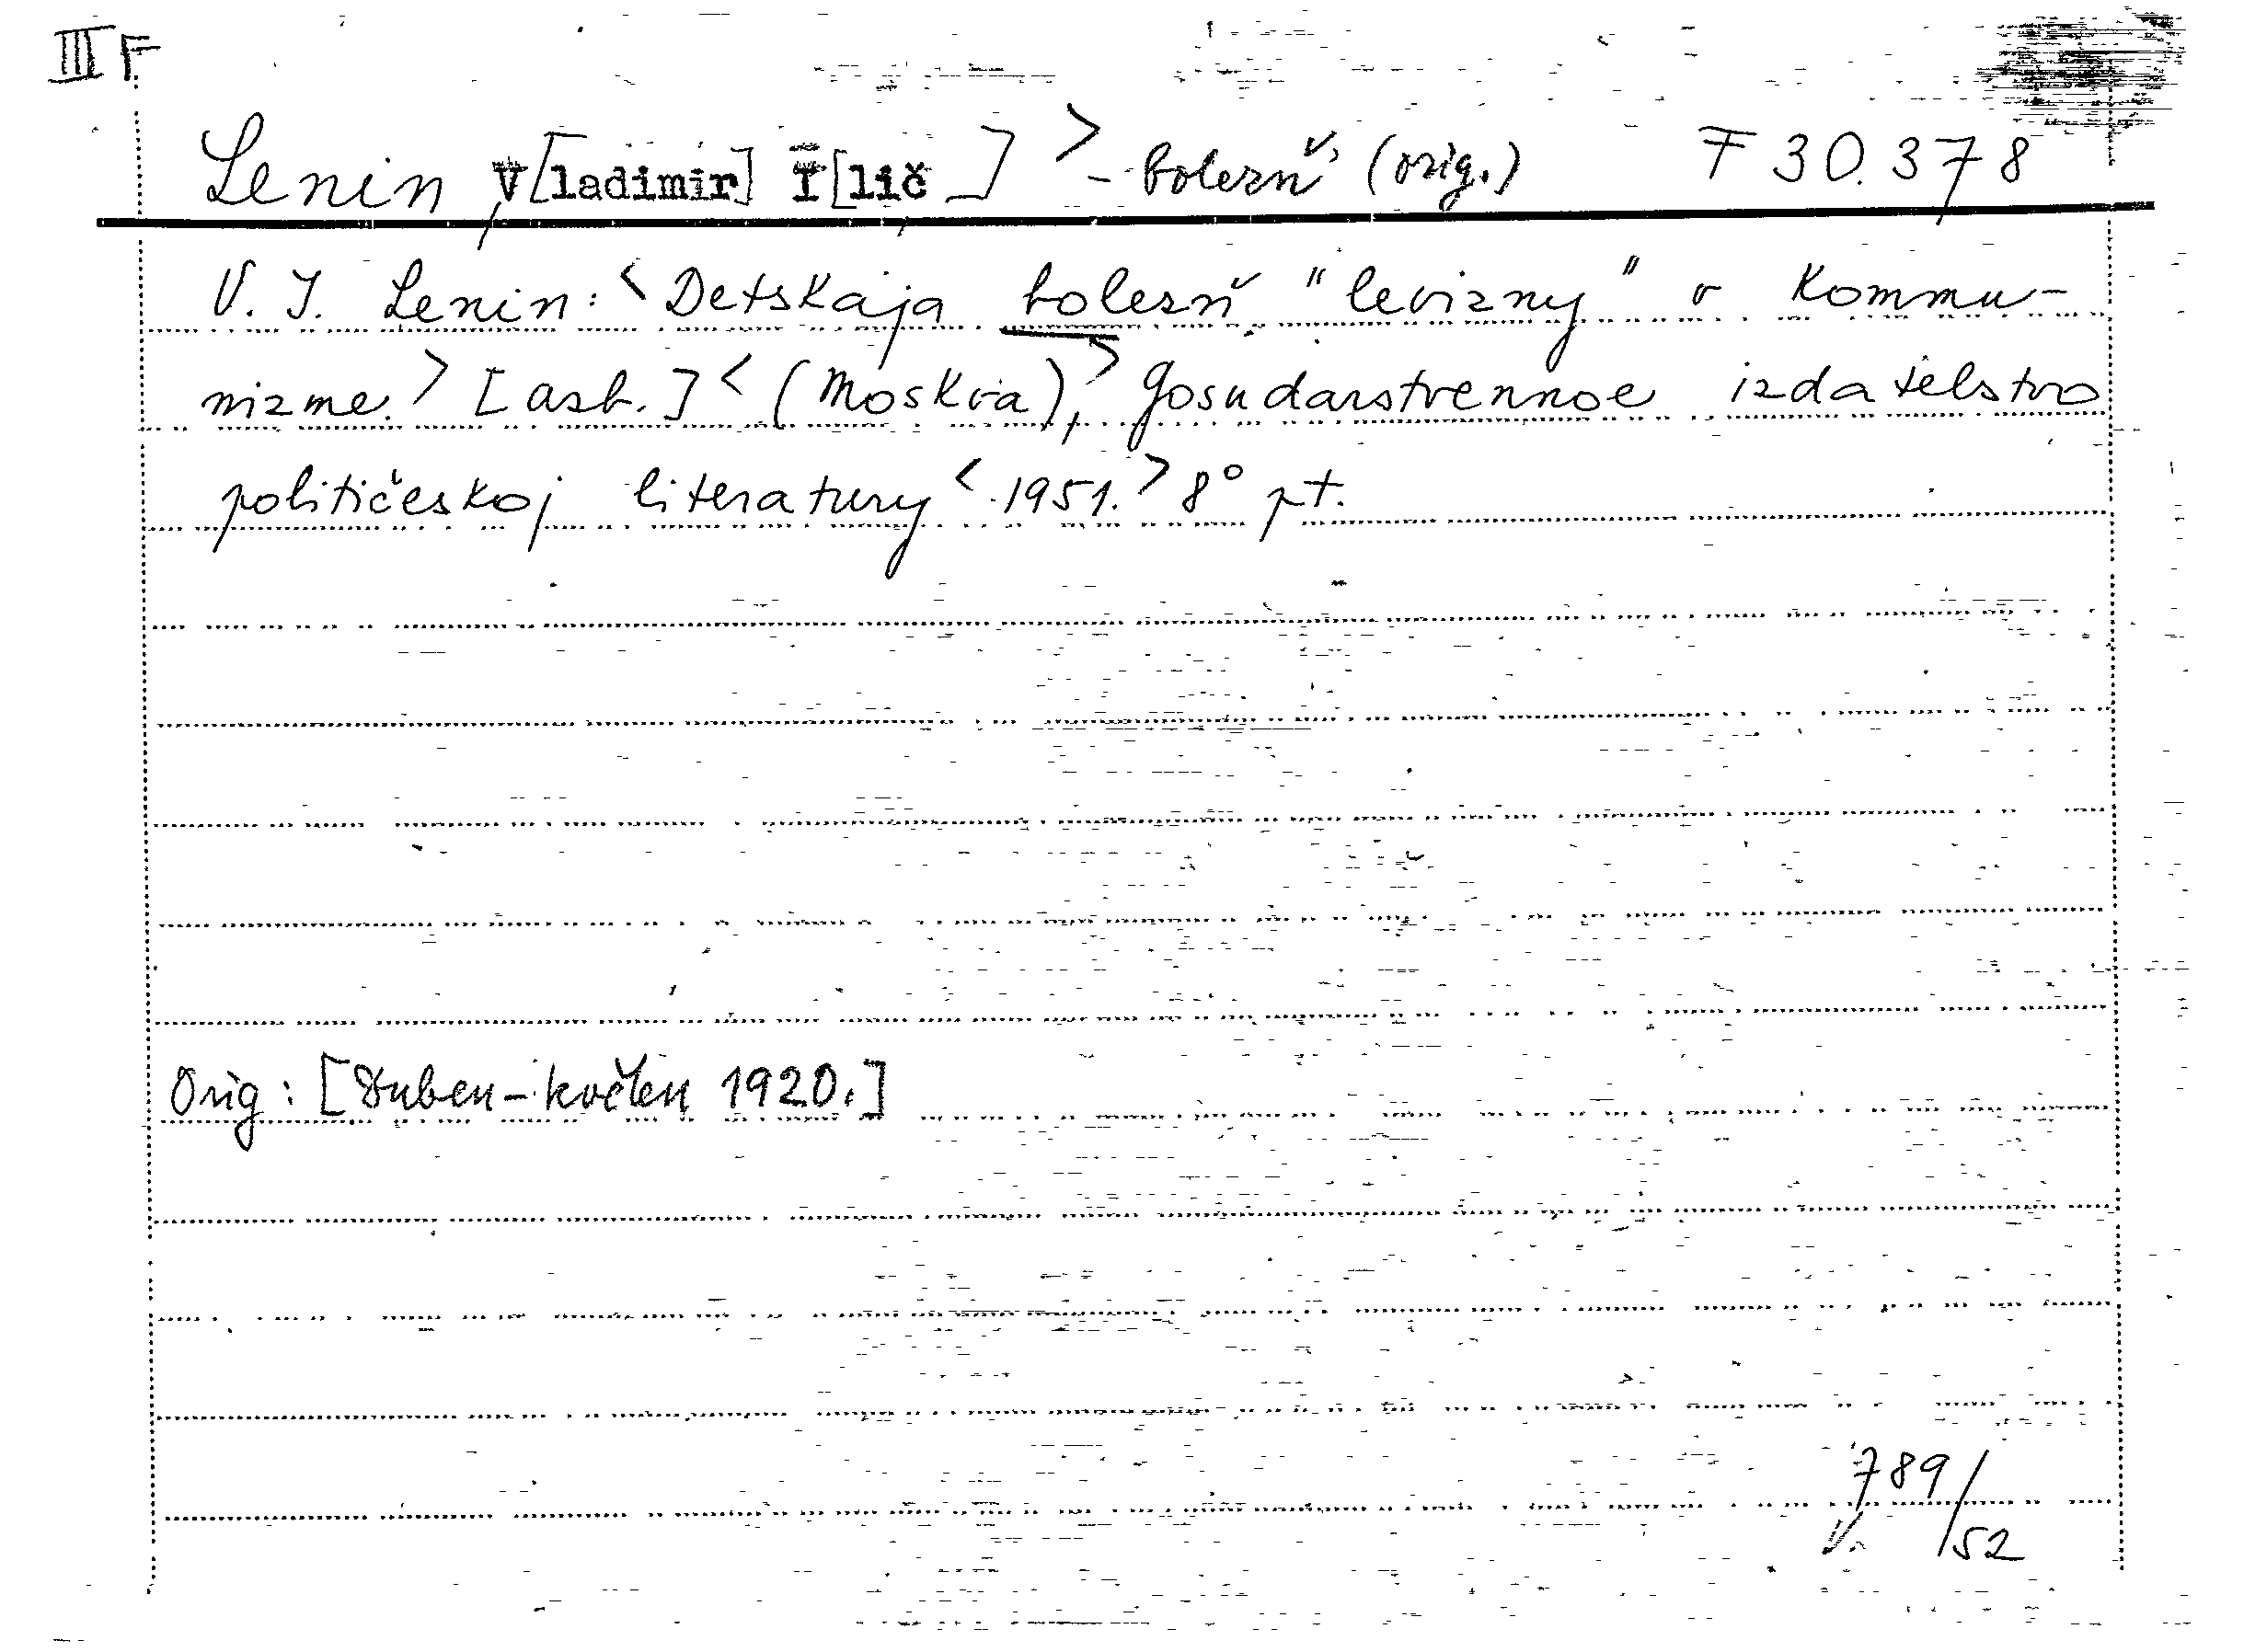 III F
Lenin, V[ladimir] I[lič] > - bolezň, (orig.) F 30.378
V. I. Lenin: < Detskaja bolezň "levizny" v kommu-
nizme. > [asb.] < (Moskva), > Gosudarstvennoe izdatělstvo
političeskoj literatury < 1951. > 8° pt.
Orig: [Duben-květen 1920.]
789/52
V.